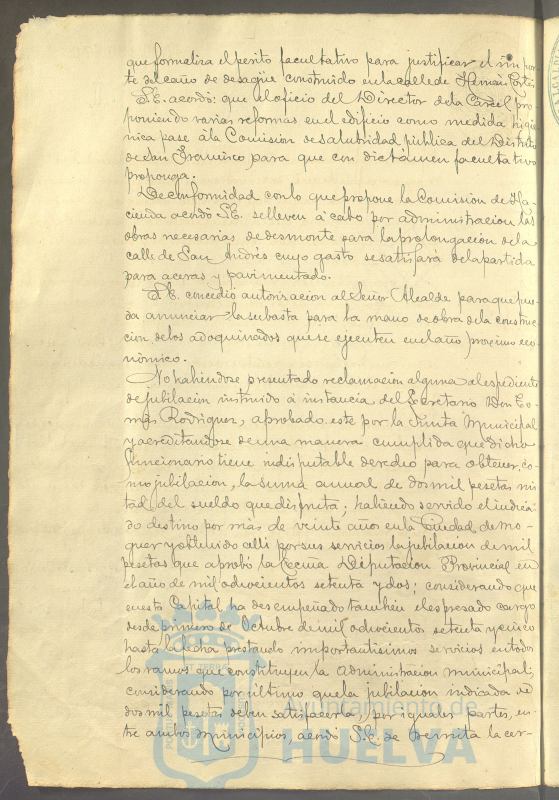 que formaliza el perito facultativo para justificar el impor
te del caño de desagüe construido en la calle de Hernán Cortés
S.E. acordó: que el oficio del Director de la Carcel pro
poniendo varias reformas en el edificio como medida higie
nica pase á la Comision de salubridad pública del Distrito
de San Francisco para que con dictámen facultativo
proponga.
De conformidad con lo que propone la Comision de Ha-
cienda acordó S.E. se lleven á cabo por administracion las
obras necesarias de desmonte para la prolongacion de la
calle de San Andrés cuyo gasto se satisfará de la partida
para aceras y pavimentado.
S.E. concedió autorizacion al Señor Alcalde para que pue-
da anunciar la subasta para la mano de obra de la construc
cion de los adoquinados que se ejecuten en el año proximo eco
nómico.
No habiéndose presentado reclamacion alguna al espediente
de jubilacion instruido á instancia del Secretario Don To-
más Rodriguez, aprobado este por la Junta Municipal
y acreditandose de una manera cumplida que dicho
funcionario tiene indisputable derecho para obtener, co-
mo jubilacion, la suma anual de dos mil pesetas mi
tad del sueldo que disfruta; habiendo servido el indica
do destino por mas de veinte años en la Ciudad de Mo-
guer y obtenido alli por sus servicios la jubilacion de mil
pesetas que aprobó la Excma Diputacion Provincial en
el año de mil ochocientos setenta y dos; considerando que
en esta Capital ha desempeñado tambien el espresado cargo
desde primero de Octubre de mil ochocientos setenta y cinco
hasta la fecha prestando importantisimos servicios en todos
los ramos que constituyen la administracion municipal;
considerando por último que la jubilacion indicada de
dos mil pesetas deben satisfacerla, por iguales partes, en-
tre ambos Municipios, acordó S.E. se remita la cer-
Ayuntamiento de
HUELVA